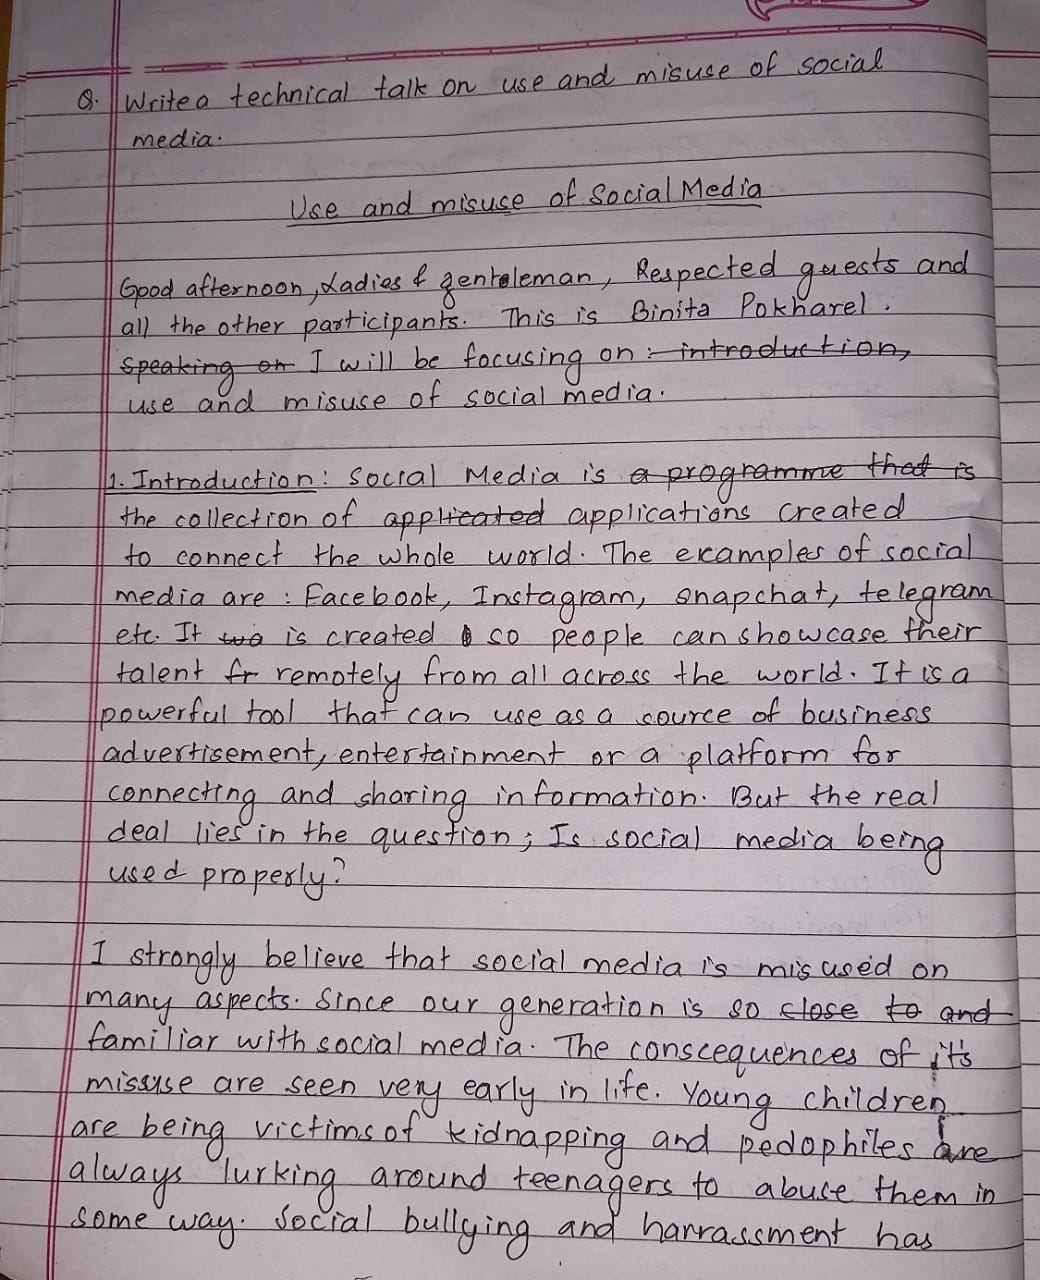 Q. Write a technical talk on use and misuse of social
media.
Use and misuse of Social Media
Good afternoon, Ladies & gentoleman, Respected guests and
all the other participants. This is Binita Pokharel.
Speaking on I will be focusing on : introduction,
use and misuse of social media.
1. Introduction: Social Media is a programme that is
the collection of applicated applications created
to connect the whole world. The examples of social
media are : Facebook, Instagram, snapchat, telegram
etc. It wa is created so people can showcase their
talent fr remotely from all across the world. It is a
powerful tool that can use as a source of business
advertisement, entertainment or a platform for
connecting and sharing information. But the real
deal lies in the question; Is social media being
used properly?
I strongly believe that social media is misused on
many aspects. Since our generation is so close to and
familiar with social media. The conscequences of it's
missuse are seen very early in life. Young children
are being victims of kidnapping and pedophiles are
always lurking around teenagers to abuse them in
some way. Social bullying and harrassment has